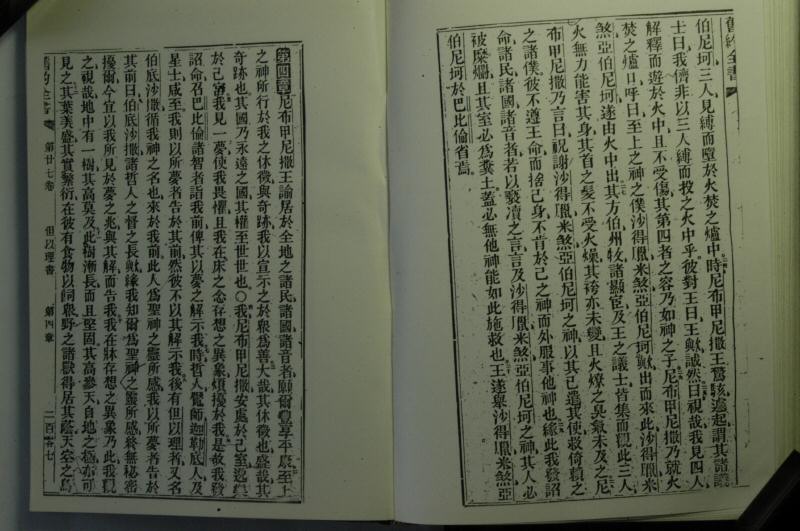 舊約全書
伯尼坷三人見縛而墮於火焚之爐中時尼布甲尼撒王驚駭遽起謂其諸議
士曰我儕非以三人縛而投之火中乎彼對王曰王歟誠然曰視哉我見四人
解釋而遊於火中且不受傷其第四者之容乃如神之子尼布甲尼撒乃就火
焚之爐口呼曰至上之神之僕沙得臘米煞亞伯尼坷歟出而來此沙得臘米
煞亞伯尼坷遂由火中出其方伯州牧諸顯宦及王之議士皆集而觀此三人
火無力能害其身其首之髮不受火燥其袴亦未變且火燎之臭氣未及之尼
布甲尼撒乃言曰祝謝沙得臘米煞亞伯尼坷之神以其已遣其使救倚賴之
之諸僕彼不遵王命而捨己身不肯於己之神而外服事他神也緣此我發詔
命諸民諸國諸音者若以褻瀆之言言及沙得臘米煞亞伯尼坷之神其人必
被糜爛且其室必為糞土蓋必無他神能如此施救也王遂舉沙得臘米煞亞
伯尼坷於巴比倫省焉
第四章 尼布甲尼撒王諭居於全地之諸民諸國諸音者願爾豊享平康至上
之神所行於我之休徵與奇跡我以宣示之於眾為善大哉其休徵也盛哉其
奇跡也其國乃永遠之國其權至世世也〇我尼布甲尼撒安處於己室逸樂
於己宮我見一夢使我畏懼且我在床之念存想之異象煩擾於我是故我發
詔命召巴比倫諸智者詣我前俾其以夢之解示我時哲人覡師迦勒底人及
星士咸至我則以所夢者告於其前然彼不以其解示我後有但以理者又名
伯底沙撒循我神之名也來於我前此人為聖神之靈所感我以所夢者告於
其前曰伯底沙撒諸哲人之督之長歟緣我知爾為聖神之靈所感終無秘密
擾爾今宜以我所見於夢之兆與其解而告我我在牀存想之異象乃此我觀
之視哉地中有一樹其高莫及此樹漸長而且堅固其高參天自地之極亦可
見之其葉美盛其實繁衍在彼有食物以飼眾野之諸獸得居其蔭天空之鳥
舊約全書 第廿七卷 但以理書 第四章 二百零七